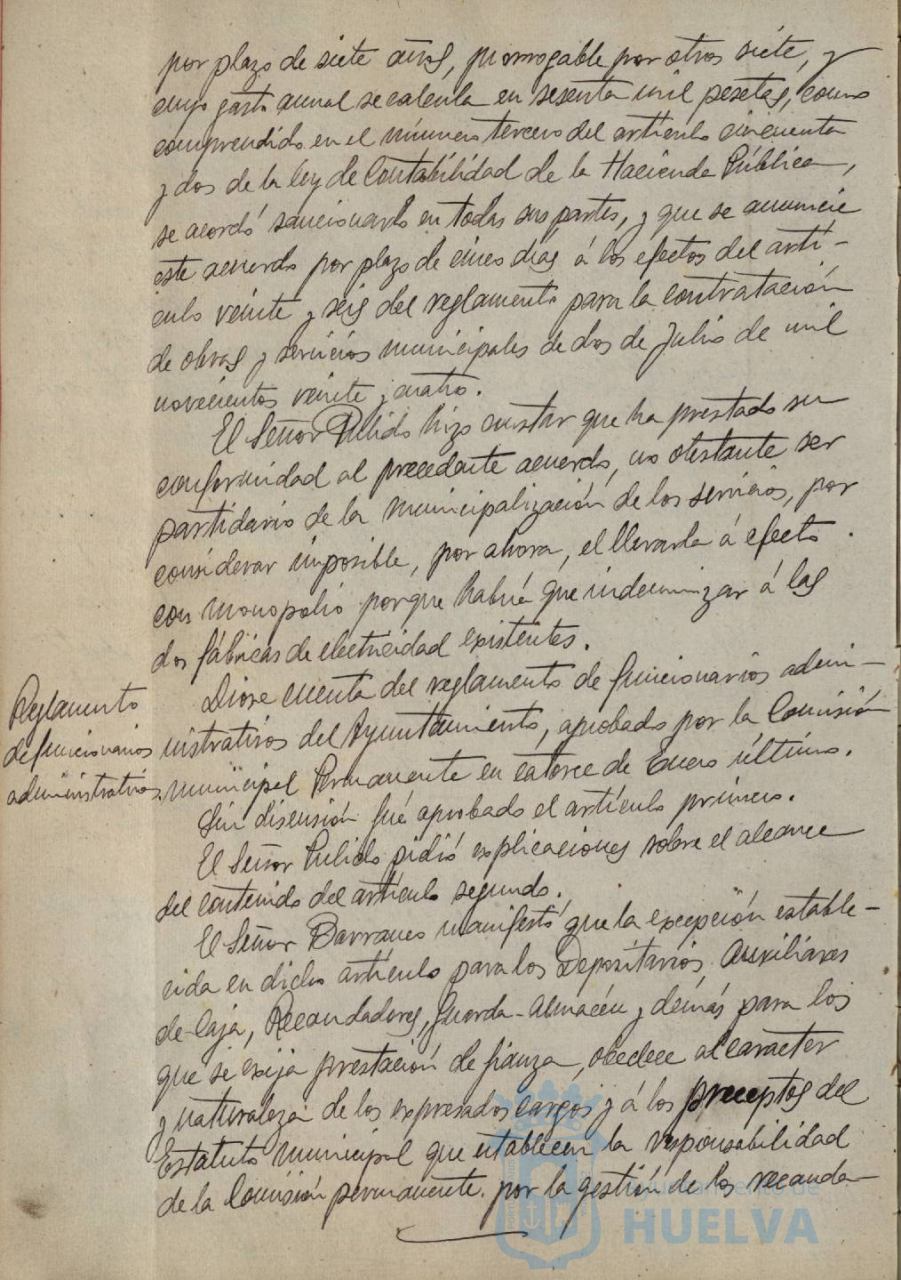 por plazo de siete años, prorrogable por otros siete, y
cuyo gasto anual se calcula en sesenta mil pesetas, como
comprendido en el número tercero del artículo cincuenta
y dos de la ley de Contabilidad de la Hacienda Pública,
se acordó sancionarlo en todas sus partes, y que se anuncie
este acuerdo por plazo de cinco días á los efectos del artí-
culo veinte y seis del reglamento para la contratación
de obras y servicios municipales de dos de Julio de mil
novecientos veinte y cuatro.
El Señor Pulido hizo constar que ha prestado su
conformidad al precedente acuerdo, no obstante ser
partidario de la municipalización de los servicios, por
considerar imposible, por ahora, el llevarla á efecto
con monopolio porque habría que indemnizar á las
dos fábricas de electricidad existentes.
Reglamento
de funcionarios
administrativos.
Diose cuenta del reglamento de funcionarios admi-
nistrativos del Ayuntamiento, aprobado por la Comisión
municipal Permanente en catorce de Enero último.
Sin discusión fué aprobado el artículo primero.
El Señor Pulido pidió explicaciones sobre el alcance
del contenido del artículo segundo.
El Señor Barranco manifestó que la excepción estable-
cida en dicho artículo para los Depositarios, Auxiliares
de Caja, Recaudadores, Guarda-Almacén y demás para los
que se exija prestación de fianza, obedece al carácter
y naturaleza de los expresados cargos y á los preceptos del
Estatuto municipal que establecen la responsabilidad
de la Comisión permanente por la gestión de los recauda-
Ayuntamiento de
HUELVA